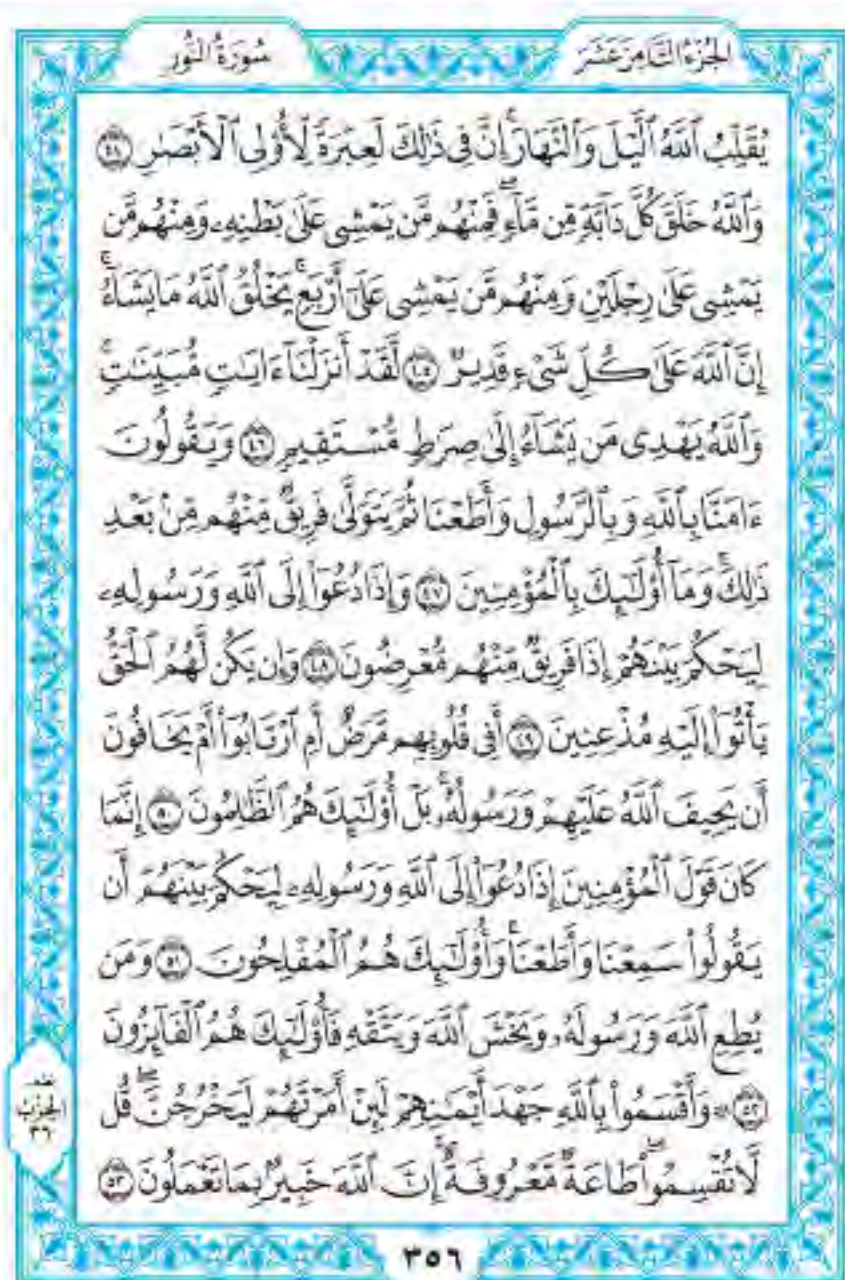 الجُزْءُ الثَّامِنَ عَشَرَ
سُورَةُ النُّورِ
يُقَلِّبُ ٱللَّهُ ٱلَّيْلَ وَٱلنَّهَارَۚ إِنَّ فِى ذَٰلِكَ لَعِبْرَةً لِّأُو۟لِى ٱلْأَبْصَٰرِ ٤٤
وَٱللَّهُ خَلَقَ كُلَّ دَآبَّةٍ مِّن مَّآءٍۖ فَمِنْهُم مَّن يَمْشِى عَلَىٰ بَطْنِهِۦ وَمِنْهُم مَّن
يَمْشِى عَلَىٰ رِجْلَيْنِ وَمِنْهُم مَّن يَمْشِى عَلَىٰٓ أَرْبَعٍۚ يَخْلُقُ ٱللَّهُ مَا يَشَآءُۚ
إِنَّ ٱللَّهَ عَلَىٰ كُلِّ شَىْءٍ قَدِيرٌ ٤٥ لَّقَدْ أَنزَلْنَآ ءَايَٰتٍ مُّبَيِّنَٰتٍۚ
وَٱللَّهُ يَهْدِى مَن يَشَآءُ إِلَىٰ صِرَٰطٍ مُّسْتَقِيمٍ ٤٦ وَيَقُولُونَ
ءَامَنَّا بِٱللَّهِ وَبِٱلرَّسُولِ وَأَطَعْنَا ثُمَّ يَتَوَلَّىٰ فَرِيقٌ مِّنْهُم مِّنۢ بَعْدِ
ذَٰلِكَۚ وَمَآ أُو۟لَٰٓئِكَ بِٱلْمُؤْمِنِينَ ٤٧ وَإِذَا دُعُوٓا۟ إِلَى ٱللَّهِ وَرَسُولِهِۦ
لِيَحْكُمَ بَيْنَهُمْ إِذَا فَرِيقٌ مِّنْهُم مُّعْرِضُونَ ٤٨ وَإِن يَكُن لَّهُمُ ٱلْحَقُّ
يَأْتُوٓا۟ إِلَيْهِ مُذْعِنِينَ ٤٩ أَفِى قُلُوبِهِم مَّرَضٌ أَمِ ٱرْتَابُوٓا۟ أَمْ يَخَافُونَ
أَن يَحِيفَ ٱللَّهُ عَلَيْهِمْ وَرَسُولُهُۥۚ بَلْ أُو۟لَٰٓئِكَ هُمُ ٱلظَّٰلِمُونَ ٥٠ إِنَّمَا
كَانَ قَوْلَ ٱلْمُؤْمِنِينَ إِذَا دُعُوٓا۟ إِلَى ٱللَّهِ وَرَسُولِهِۦ لِيَحْكُمَ بَيْنَهُمْ أَن
يَقُولُوا۟ سَمِعْنَا وَأَطَعْنَاۚ وَأُو۟لَٰٓئِكَ هُمُ ٱلْمُفْلِحُونَ ٥١ وَمَن
يُطِعِ ٱللَّهَ وَرَسُولَهُۥ وَيَخْشَ ٱللَّهَ وَيَتَّقْهِ فَأُو۟لَٰٓئِكَ هُمُ ٱلْفَآئِزُونَ
٥٢ ۞ وَأَقْسَمُوا۟ بِٱللَّهِ جَهْدَ أَيْمَٰنِهِمْ لَئِنْ أَمَرْتَهُمْ لَيَخْرُجُنَّۖ قُل
لَّا تُقْسِمُوا۟ۖ طَاعَةٌ مَّعْرُوفَةٌۚ إِنَّ ٱللَّهَ خَبِيرٌۢ بِمَا تَعْمَلُونَ ٥٣
نصف
الحِزْب
٣٦
٣٥٦